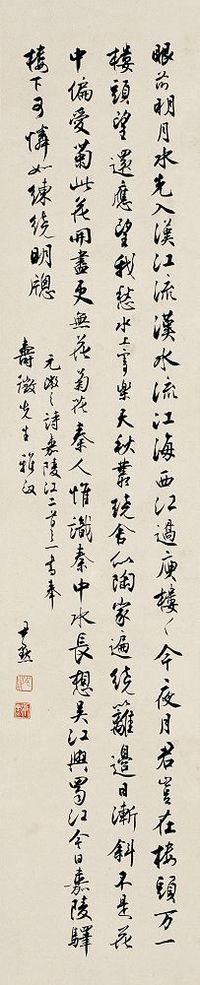 眼前明月水先入漢江流漢水流江海西江過庾樓〻今夜月君豈在樓頭万一
樓頭望還應望我愁水上寄樂天秋叢繞舍似陶家遍繞籬邊日漸斜不是花
中偏愛菊此花開盡更無花菊花秦人惟識秦中水長想吳江與蜀江今日嘉陵驛
樓下可憐如練繞明牕
元微之詩嘉陵江二首之一書奉
壽徵先生雅政
尹默